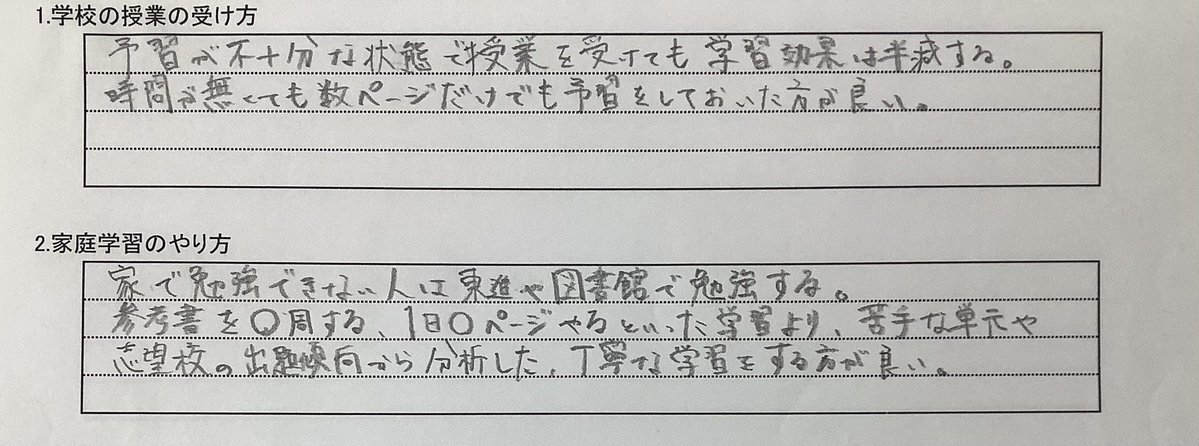 1.学校の授業の受け方
予習が不十分な状態で授業を受けても学習効果は半減する。
時間が無くても数ページだけでも予習をしておいた方が良い。
2.家庭学習のやり方
家で勉強できない人は東進や図書館で勉強する。
参考書を〇周する、1日〇ページやるといった学習より、苦手な単元や
志望校の出題傾向から分析した、丁寧な学習をする方が良い。